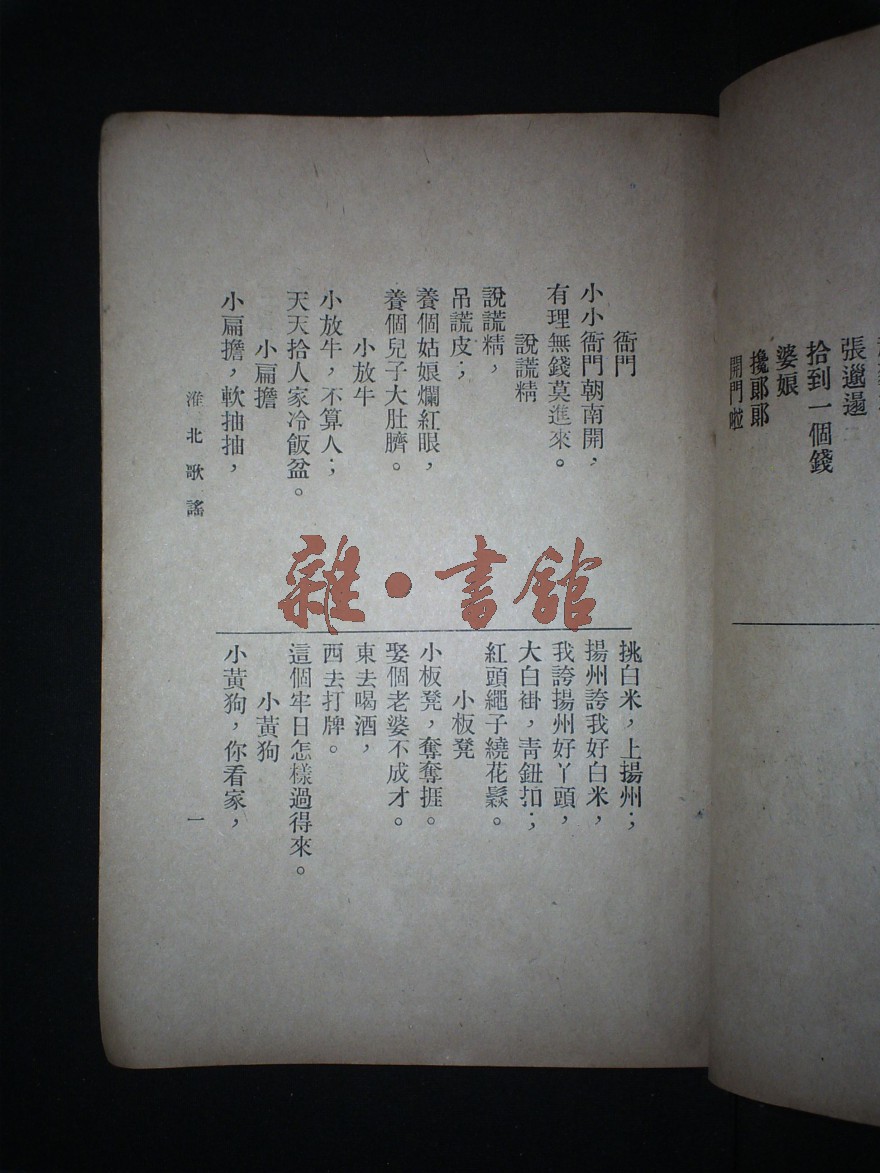 張邋遢
拾到一個錢
婆娘
攙郎郎
開門啦
衙門
小小衙門朝南開，
有理無錢莫進來。
說謊精
說謊精，
吊謊皮；
養個姑娘爛紅眼，
養個兒子大肚臍。
小放牛
小放牛，不算人；
天天拾人家冷飯盆。
小扁擔
小扁擔，軟抽抽，
挑白米，上揚州；
揚州誇我好白米，
我誇揚州好丫頭，
大白褂，青鈕扣；
紅頭繩子繞花鬏。
小板凳
小板凳，奪奪捱。
娶個老婆不成才。
東去喝酒，
西去打牌。
這個牢日怎樣過得來。
小黃狗
小黃狗，你看家，
淮北歌謠
一
雜·書館